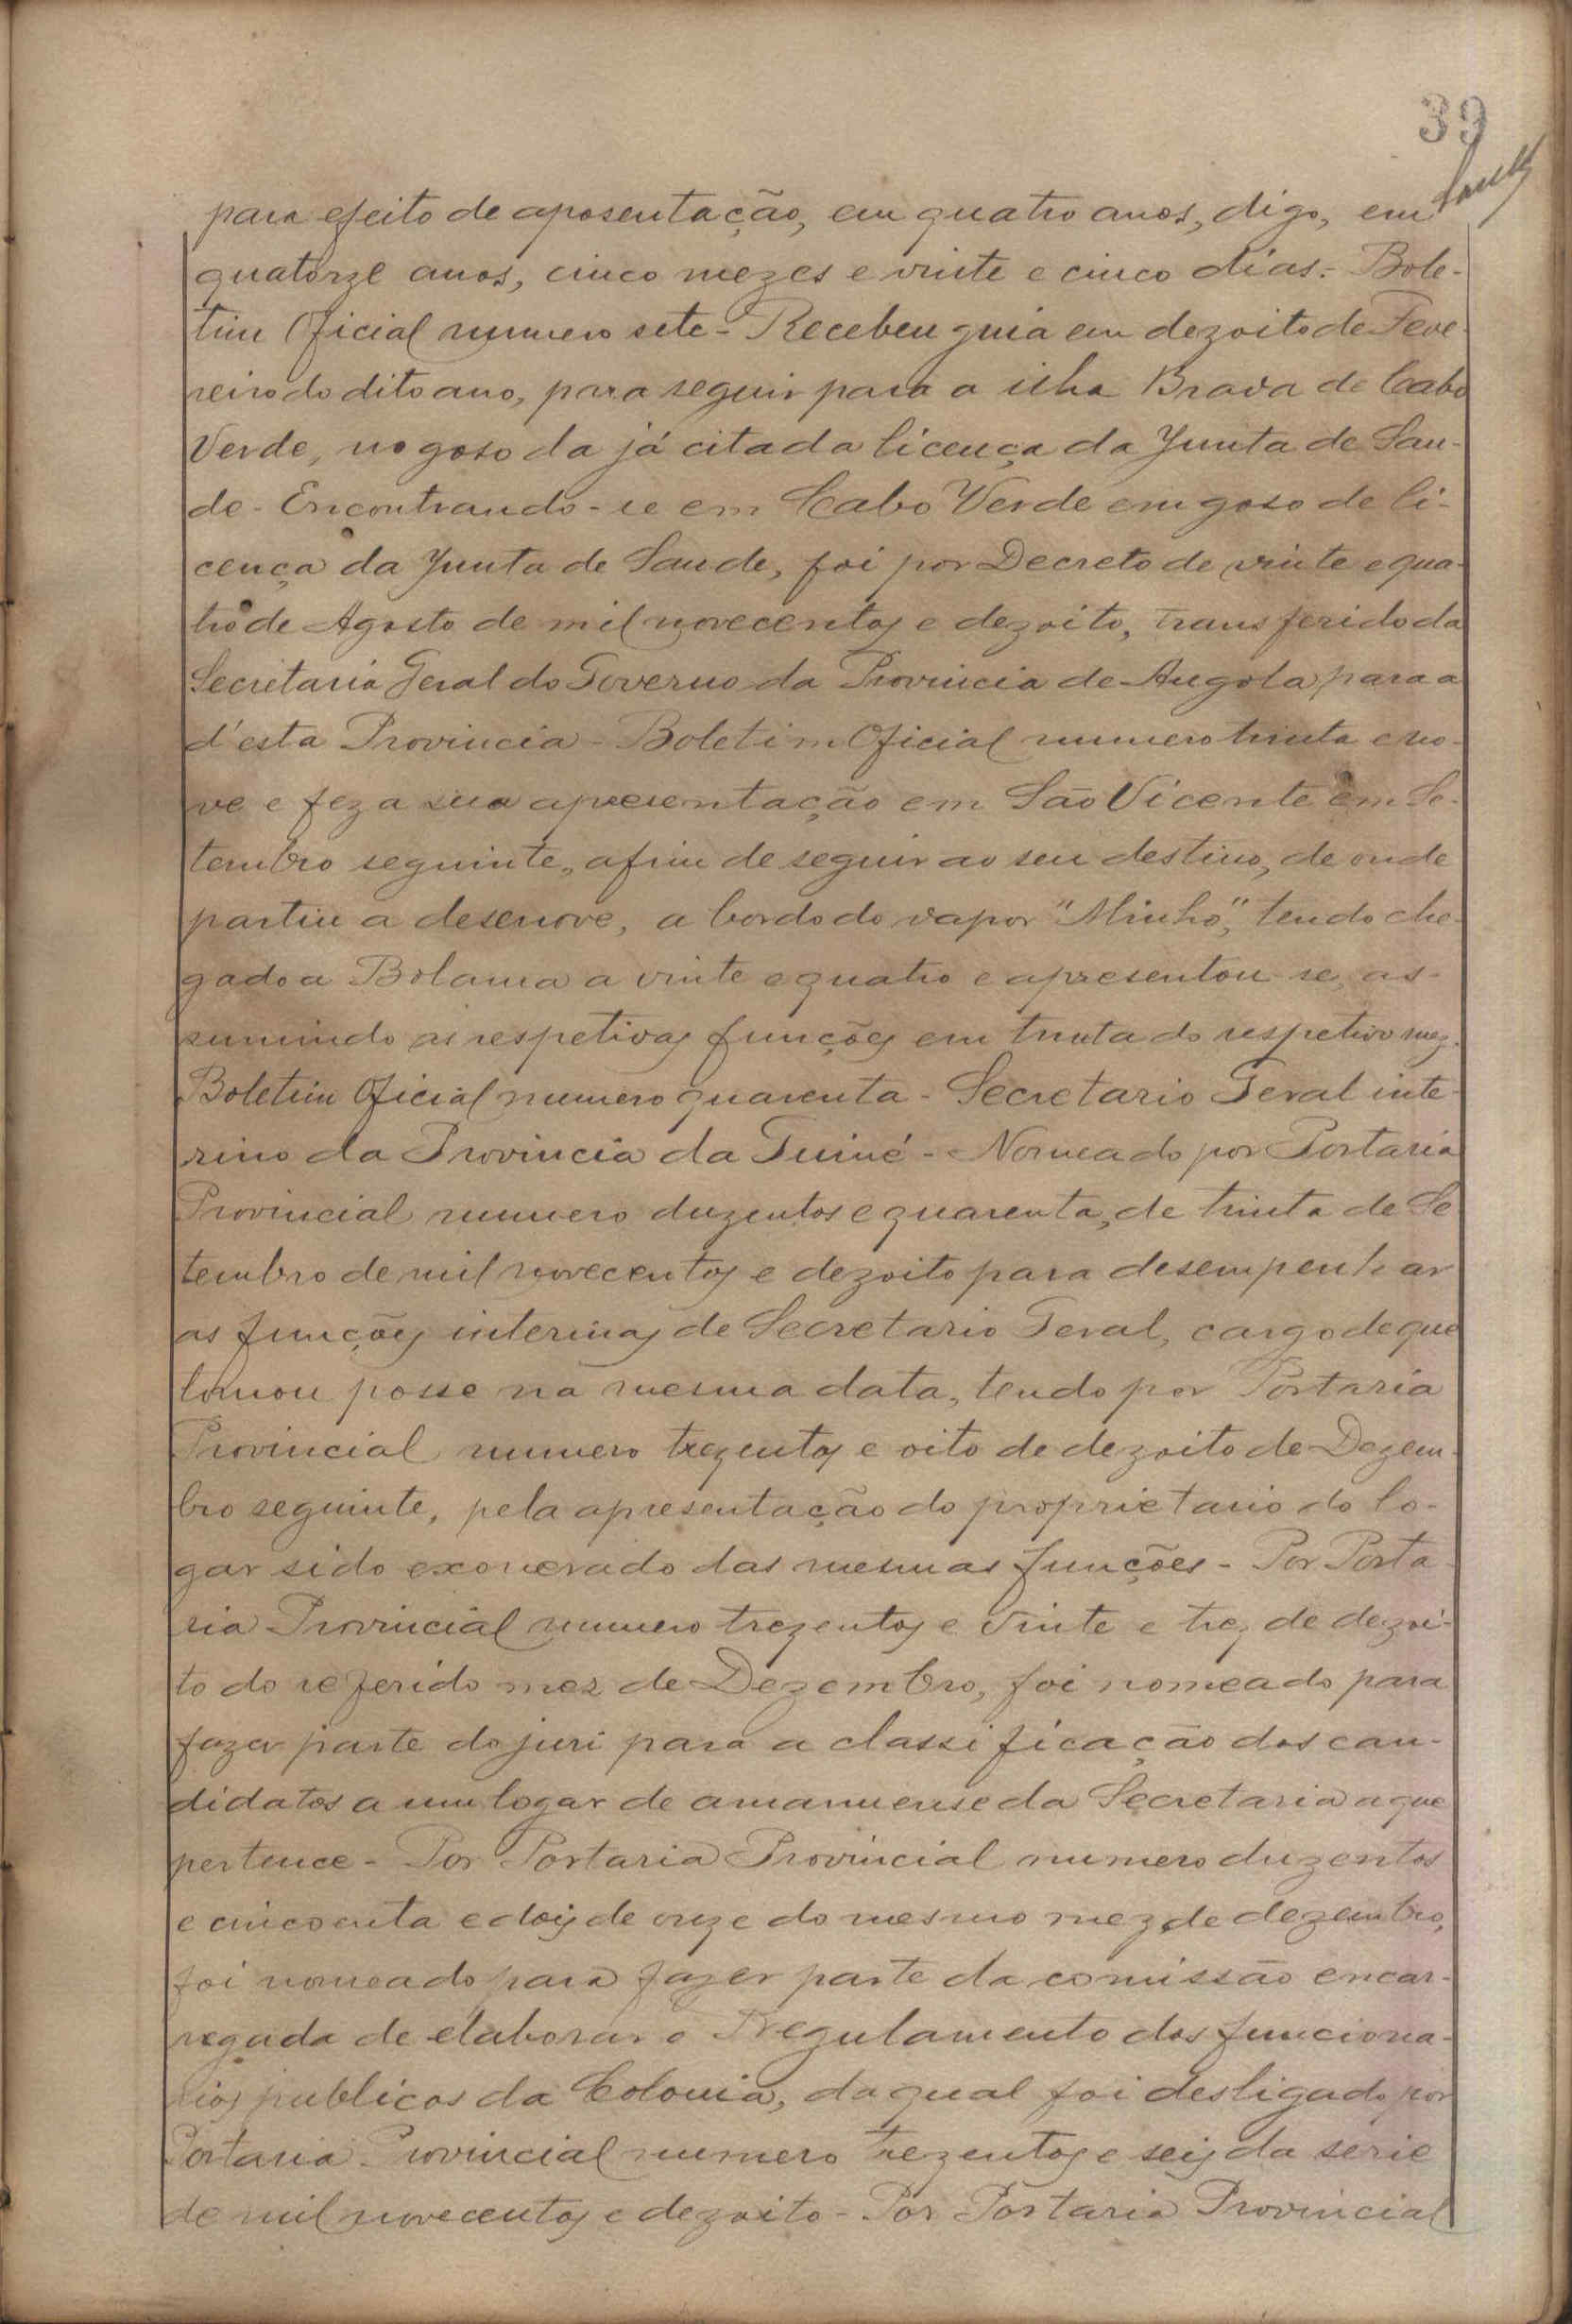 39
para efeito de aposentação, em quatro anos, digo, em
quatorze anos, cinco mezes e vinte e cinco dias. Bole-
tim Oficial numero sete - Recebeu guia em dezoito de Feve-
reiro do dito ano, para seguir para a ilha Brava de Cabo
Verde, no goso da já citada licença da Junta de Sau-
de - Encontrando-se em Cabo Verde em goso de li-
cença da Junta de Saude, foi por Decreto de vinte e qua-
tro de Agosto de mil novecentos e dezoito, transferido da
Secretaria Geral do Governo da Provincia de Angola, para a
d'esta Provincia - Boletim Oficial numero trinta e no-
ve e fez a sua apresentação em São Vicente em Se-
tembro seguinte, afim de seguir ao seu destino, de onde
partiu a desenove, a bordo do vapor "Minho", tendo che-
gado a Bolama a vinte e quatro e apresentou-se, as-
sumindo as respetivas funções em trinta do respetivo mez.
Boletim Oficial numero quarenta - Secretario Geral inte-
rino da Provincia da Guiné - Nomeado por Portaria
Provincial numero duzentos e quarenta, de trinta de Se
tembro de mil novecentos e dezoito para desempenhar
as funções interinas de Secretario Geral, cargo de que
tomou posse na mesma data, tendo por Portaria
Provincial numero trezentos e oito de dezoito de Dezem-
bro seguinte, pela apresentação do proprietario do lo-
gar sido exonerado das mesmas funções - Por Porta-
ria Provincial numero trezentos e vinte e trez de dezoi-
to do referido mez de Dezembro, foi nomeado para
fazer parte do juri para a classificação dos can-
didatos a um logar de amanuense da Secretaria a que
pertence - Por Portaria Provincial numero duzentos
e cincoenta e dois de onze do mesmo mez de dezembro,
foi nomeado para fazer parte da comissão encar-
regada de elaborar o Regulamento dos funciona-
rios publicos da Colonia, da qual foi desligado por
Portaria Provincial numero trezentos e seis da serie
de mil novecentos e dezoito - Por Portaria Provincial